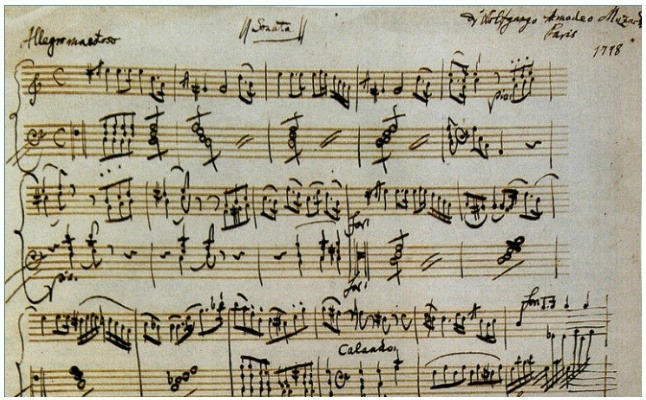 Sonata
di Wolfgango Amadeo Mozart
Paris
1778
Allegro maestoso
pia:
for:
pia:
for:
for:
Calando